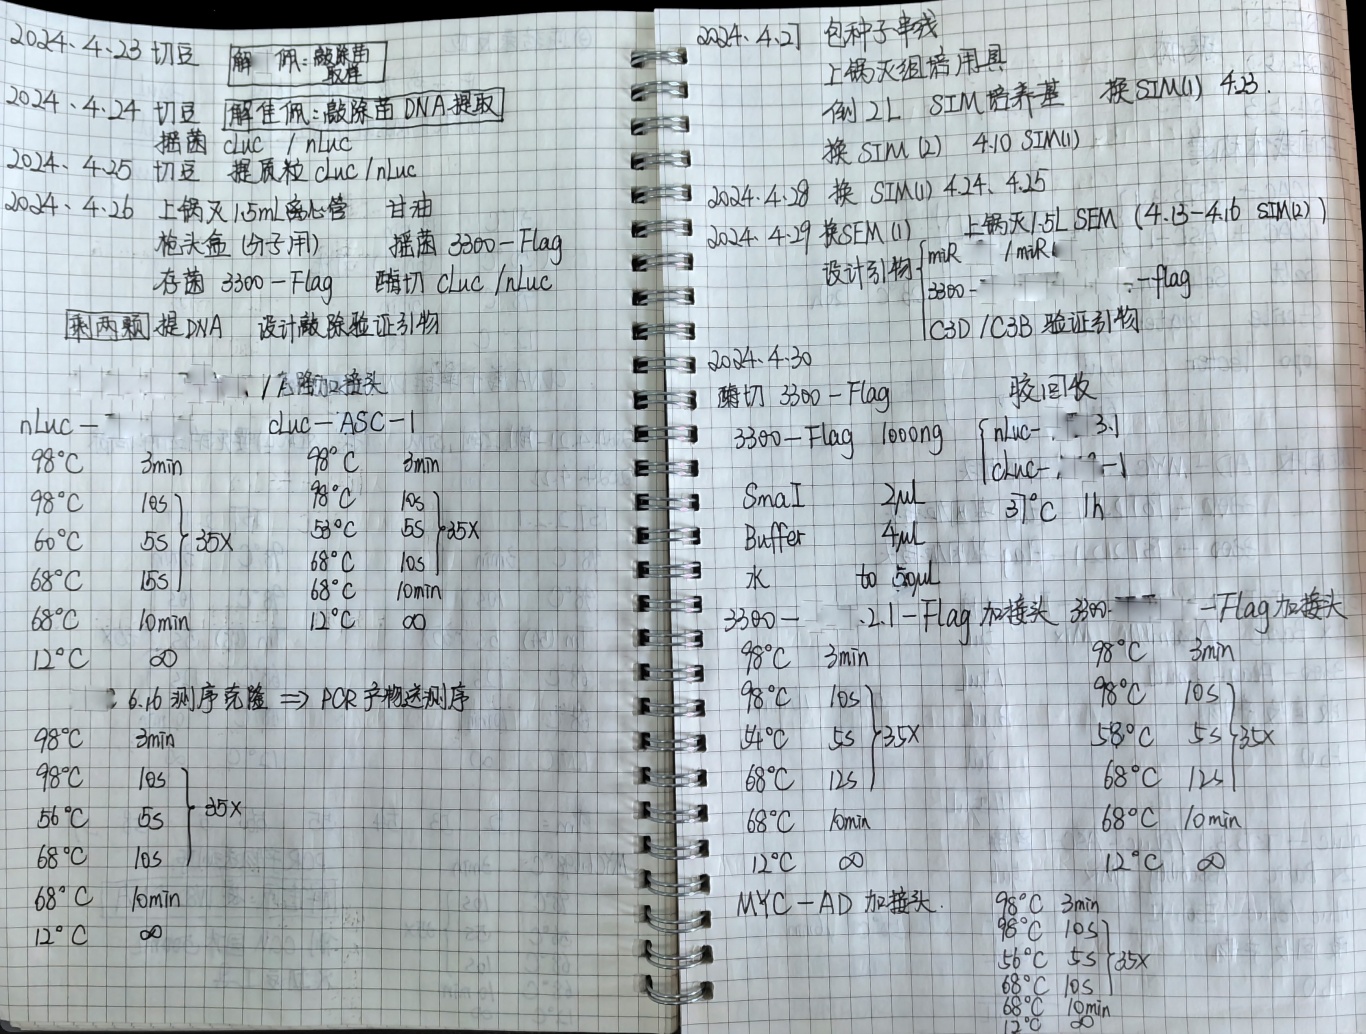 2024.4.23 切豆 解 佩：敲除菌
取样
2024.4.24 切豆 解佳佩：敲除菌DNA提取
摇菌 cLuc / nLuc
2024.4.25 切豆 提质粒 cLuc / nLuc
2024.4.26 上锅灭1.5mL离心管 甘油
枪头盒(分子用) 摇菌 3300-Flag
存菌 3300-Flag 酶切 cLuc / nLuc
乘两颗 提DNA 设计敲除验证引物
克隆加接头
nLuc- cLuc-ASC-1
98°C 3min 98°C 3min
98°C 10s 98°C 10s
60°C 5s 35X 53°C 5s 35X
68°C 15s 68°C 10s
68°C 10min 68°C 10min
12°C ∞ 12°C ∞
: 6.16 测序克隆 ⇒ PCR产物送测序
98°C 3min
98°C 10s
56°C 5s 35X
68°C 10s
68°C 10min
12°C ∞
2024.4.27 包种子串线
上锅灭组培用具
倒2L SIM培养基 换SIM(1) 4.23.
换SIM(2) 4.10 SIM(1)
2024.4.28 换 SIM(1) 4.24、4.25
2024.4.29 换SEM(1) 上锅灭1.5L SEM (4.13-4.16 SIM(2))
设计引物 miR /miR
3300- -flag
C3D / C3B 验证引物
2024.4.30
酶切 3300-Flag 胶回收
3300-Flag 1000ng nLuc- 3.1
cLuc- -1
SmaI 2μL 37°C 1h
Buffer 4μL
水 to 50μL
3300- .2.1-Flag加接头 3300- -Flag加接头
98°C 3min 98°C 3min
98°C 10s 98°C 10s
54°C 5s 35X 58°C 5s 35X
68°C 12s 68°C 12s
68°C 10min 68°C 10min
12°C ∞ 12°C ∞
MYC-AD 加接头. 98°C 3min
98°C 10s
56°C 5s 35X
68°C 10s
68°C 10min
12°C ∞